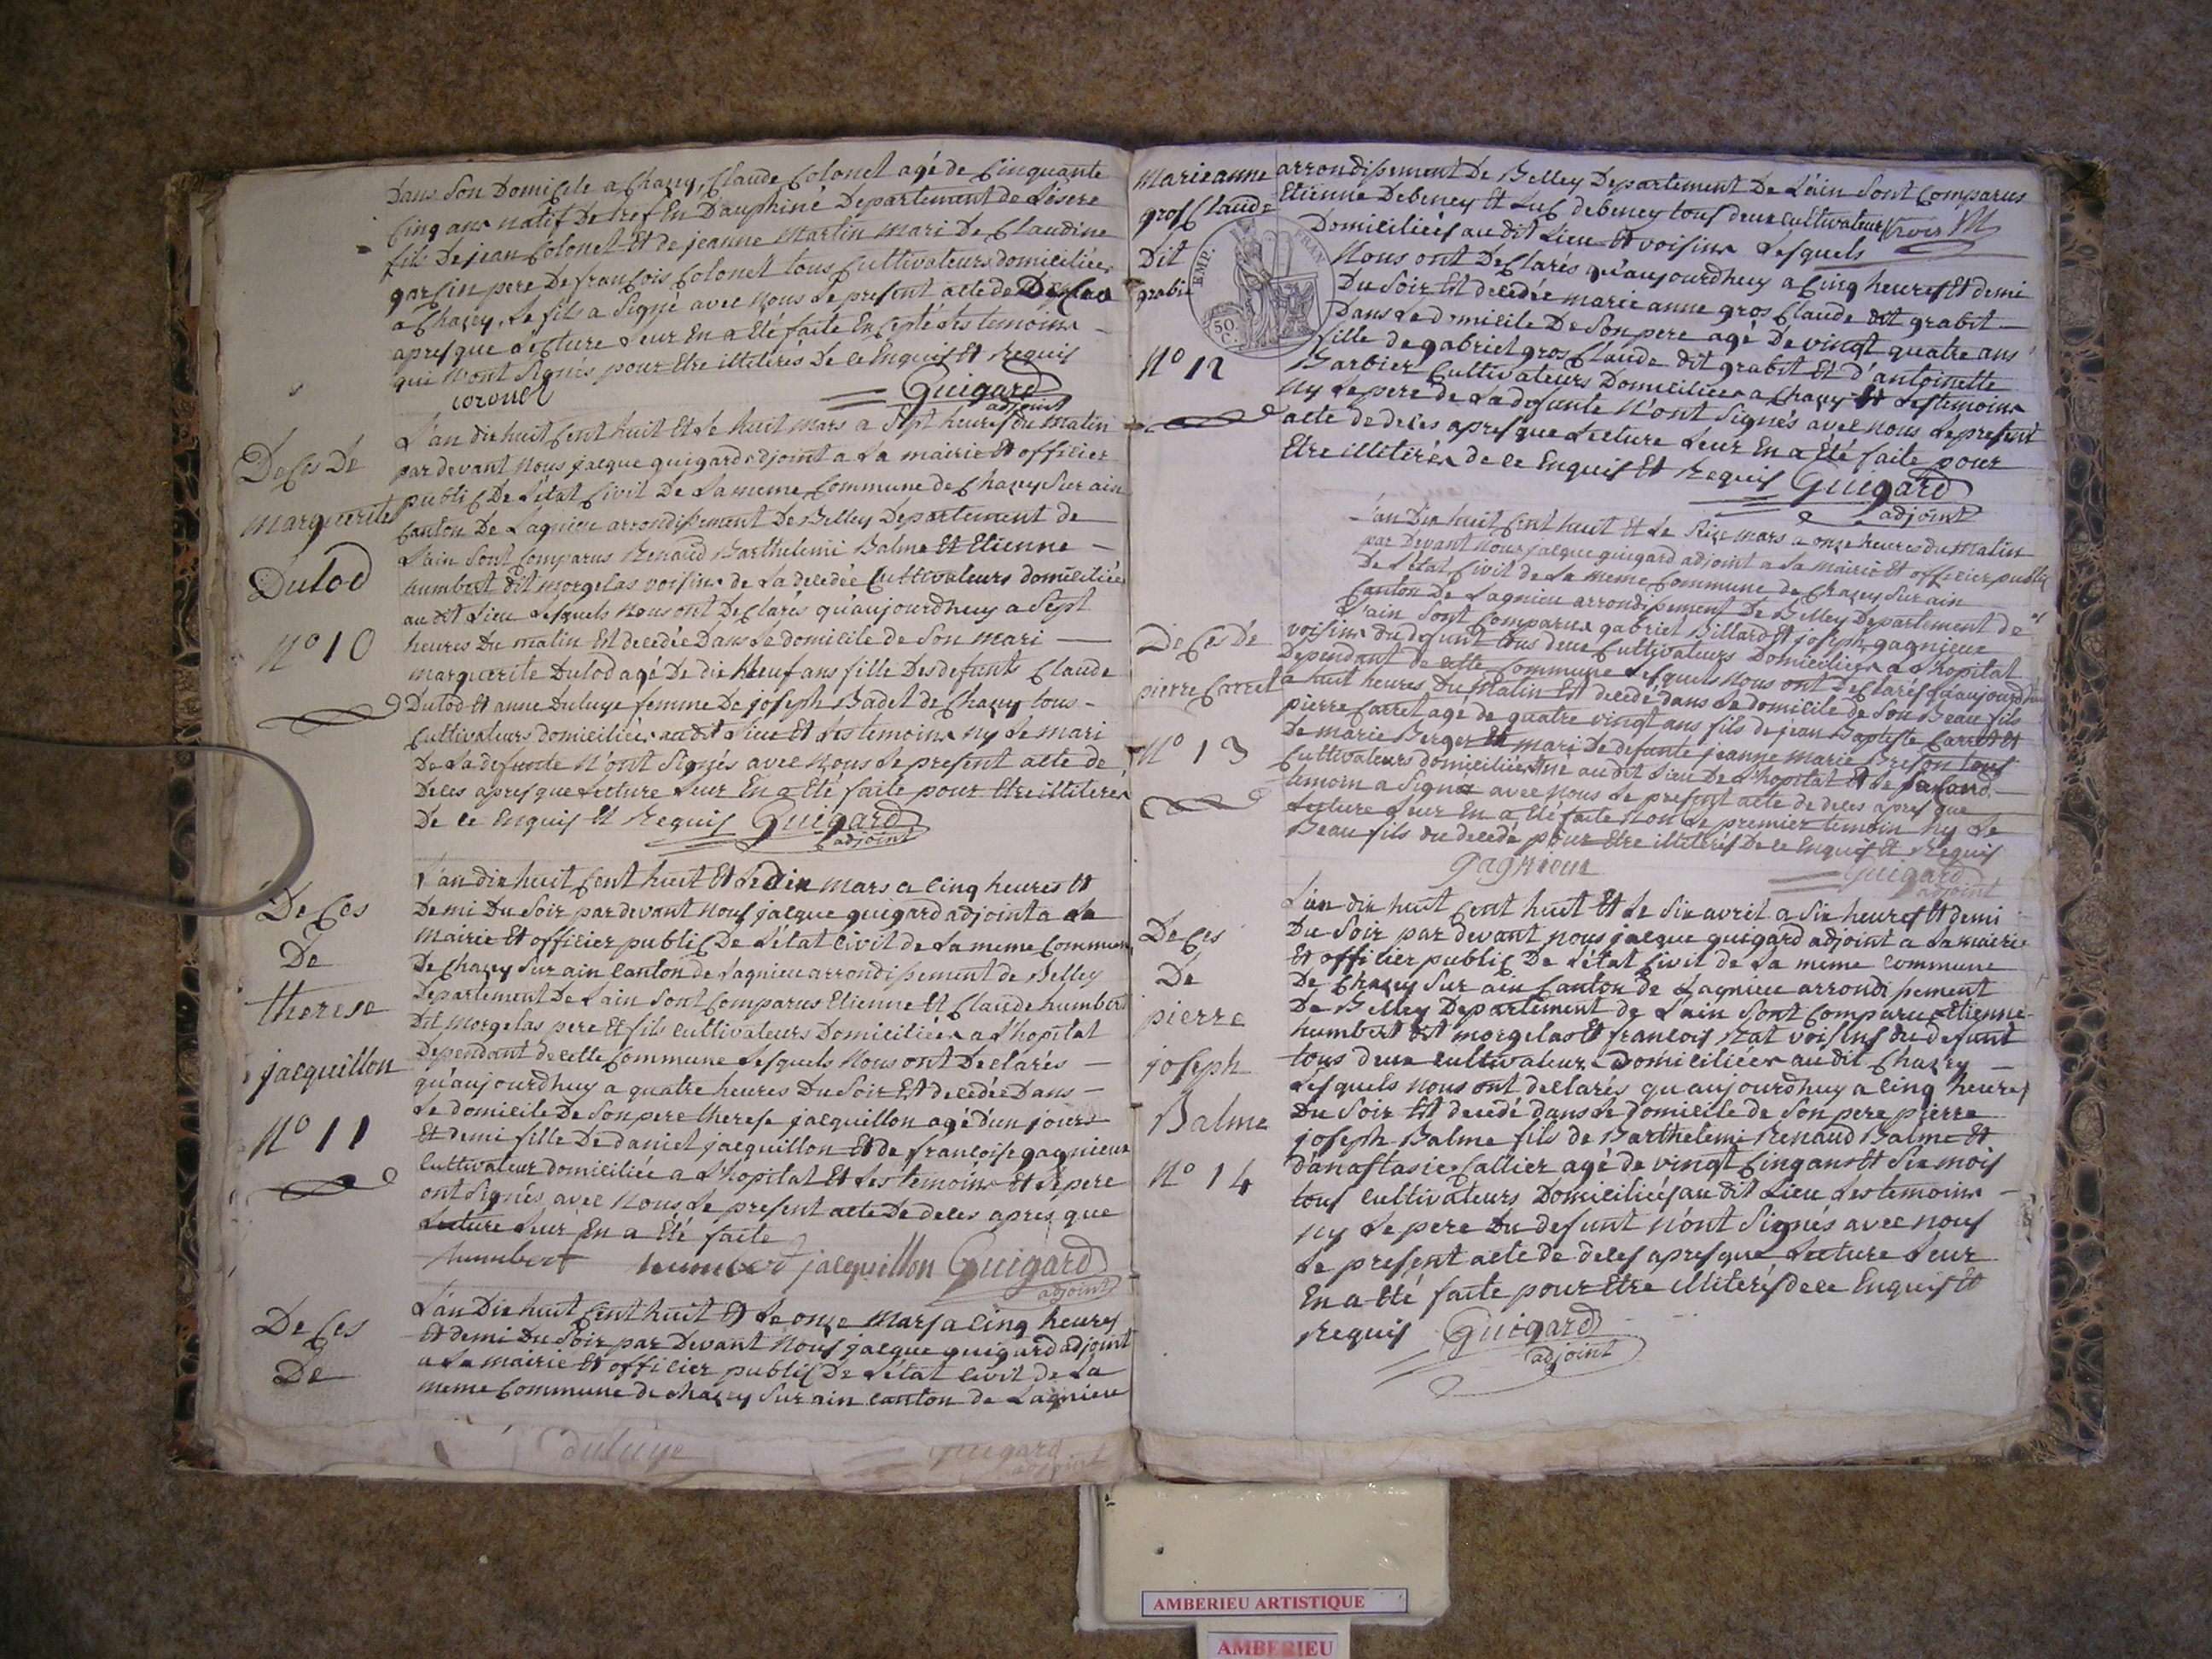 Dans Son Domicile a Chazey, Claude Colonel agé de Cinquante
Cinq ans natif De tref En Dauphiné Departement de Lisere
fils De jean Colonel Et de jeanne Martin mari De Claudine
garcin pere De francois Colonel tous Cultivateurs domiciliées
a Chazey, Le fils a Signé avec Nous Le present acte de Deces
apres que Lecture Leur En a Eté faite Excepté des temoins
qui N'ont Signés pour Etre illiterés De Ce Enquis Et Requis
coronel
Guigard
adjoint
Deces De
Marguerite
Dulod
N° 10
L'an dix huit Cent huit Et Le huit mars a Sept heures du Matin
par devant Nous jacque guigard adjoint a La mairie Et officier
public De L'état Civil De La meme Commune de Chazey Sur ain
Canton De Lagnieu arrondissement De Belley Departement de
L'ain Sont Comparus Renaud Barthelemi Balme Et Etienne
humbert dit morgelas voisins de La decedée Cultivateurs domiciliées
au dit Lieu Lesquels Nous ont Declarés qu'aujourdhuy a Sept
heures Du matin Est decedée Dans Le domicile de Son mari
marguerite Dulod agé De dix Neuf ans fille Des defunts Claude
Dulod Et anne Duluye femme De joseph Badet de Chazey tous
Cultivateurs domiciliées au dit Lieu Et Les temoins ny Le mari
De La defunte N'ont Signés avec Nous Le present acte de
Deces apres que Lecture Leur En a Eté faite pour Etre illiterés
De Ce Enquis Et Requis Guigard
adjoint
Deces
De
therese
jacquillon
N° 11
L'an dix huit Cent huit Et Le dix mars a Cinq heures Et
Demi Du Soir par devant Nous jacque guigard adjoint a La
Mairie Et officier public De L'état Civil de La meme Commune
De Chazey Sur ain Canton de Lagnieu arrondissement de Belley
Departement De L'ain Sont Comparus Etienne Et Claude humbert
Dit Morgelas pere Et fils cultivateurs Domiciliées a L'hopital
Dependant de cette Commune Lesquels Nous ont Declarés
qu'aujourdhuy a quatre heures Du Soir Est decedée Dans
Le domicile De Son pere therese jacquillon agé d'un jours
Et demi fille De daniel jacquillon Et de francoise gagnieux
Cultivateur domiciliée a L'hopital Et Les temoins Et Le pere
ont Signés avec Nous Le present acte De deces apres que
Lecture Leur En a Eté faite
humbert humbert jacquillon Guigard
adjoint
Deces
De
L'an Dix huit Cent huit Et Le onze Mars a Cinq heures
Et demi Du Soir par Devant Nous jacque guigard adjoint
a La mairie Et officier public De L'état Civil de La
meme Commune de Chazey Sur ain Canton de Lagnieu
duluye
Guigard
adjoint
Marie anne
gros Claude
Dit
grabit
N° 12
EMP. FRAN
50 C.
arrondissement De Belley Departement De L'ain Sont Comparus
Etienne Debeney Et Luc debeney tous deux cultivateurs
Domiciliés au dit Lieu Et voisins Lesquels
Nous ont Declarés qu'aujourdhuy a Cinq heures Et demi
Du Soir Est decedée marie anne gros Claude dit grabit
Dans Le domicile De Son pere agé de vingt quatre ans
fille de gabriel gros Claude dit grabit Et d'antoinette
Barbier Cultivateurs Domiciliées a Chazey Et Les temoins
Ny Le pere de La defunte N'ont Signés avec nous Le present
acte de deces apres que Lecture Leur En a Eté faite pour
Etre illiterés de Ce Enquis Et Requis Guigard
adjoint
Deces De
pierre Carret
N° 13
L'an Dix huit Cent huit Et Le Seize mars a onze heures du Matin
par Devant Nous jacque guigard adjoint a La Mairie Et officier public
De L'état Civil de La meme Commune de Chazey Sur ain
Canton De Lagnieu arrondissement De Belley Departement de
L'ain Sont Comparus gabriel Billard Et joseph gagnieux
voisins du defunt tous deux Cultivateurs Domiciliées a L'hopital
Dependant de cette Commune Lesquels Nous ont Declarés qu'aujourdhuy
a huit heures Du Matin Est decedé dans Le domicile de Son Beau fils
pierre Carret agé de quatre vingt ans fils de jean Baptiste Carret Et
De marie Berger Et mari De defunte jeanne marie Breson tous
Cultivateurs domiciliées né au dit Lieu De L'hopital Et Le Second
temoin a Signé avec Nous Le present acte de deces apres que
Lecture Leur En a Eté faite Non Le premier temoin ny Le
Beau fils du decedé pour Etre illiterés De Ce Enquis Et Requis
gagnieux
Guigard
adjoint
Deces
De
pierre
joseph
Balme
N° 14
L'an dix huit Cent huit Et Le Six avril a Six heures Et demi
Du Soir par devant nous jacque guigard adjoint a La mairie
Et officier public De L'état Civil de La meme Commune
De Chazey Sur ain Canton de Lagnieu arrondissement
De Belley Departement de L'ain Sont Comparus Etienne
humbert dit morgelas Et francois Rat voisins du defunt
tous deux cultivateurs Domiciliées au dit Chazey
Lesquels Nous ont declarés qu'aujourdhuy a Cinq heures
Du Soir Est decedé dans Le domicile de Son pere pierre
joseph Balme fils de Barthelemi Renaud Balme Et
d'anastasie Callier agé de vingt Cinq ans Et Six mois
tous cultivateurs Domiciliés au dit Lieu Les temoins
ny Le pere Du defunt N'ont Signés avec nous
Le present acte de deces apres que Lecture Leur
En a Eté faite pour Etre illiterés de Ce Enquis Et
Requis Guigard
adjoint
AMBERIEU ARTISTIQUE
AMBERIEU